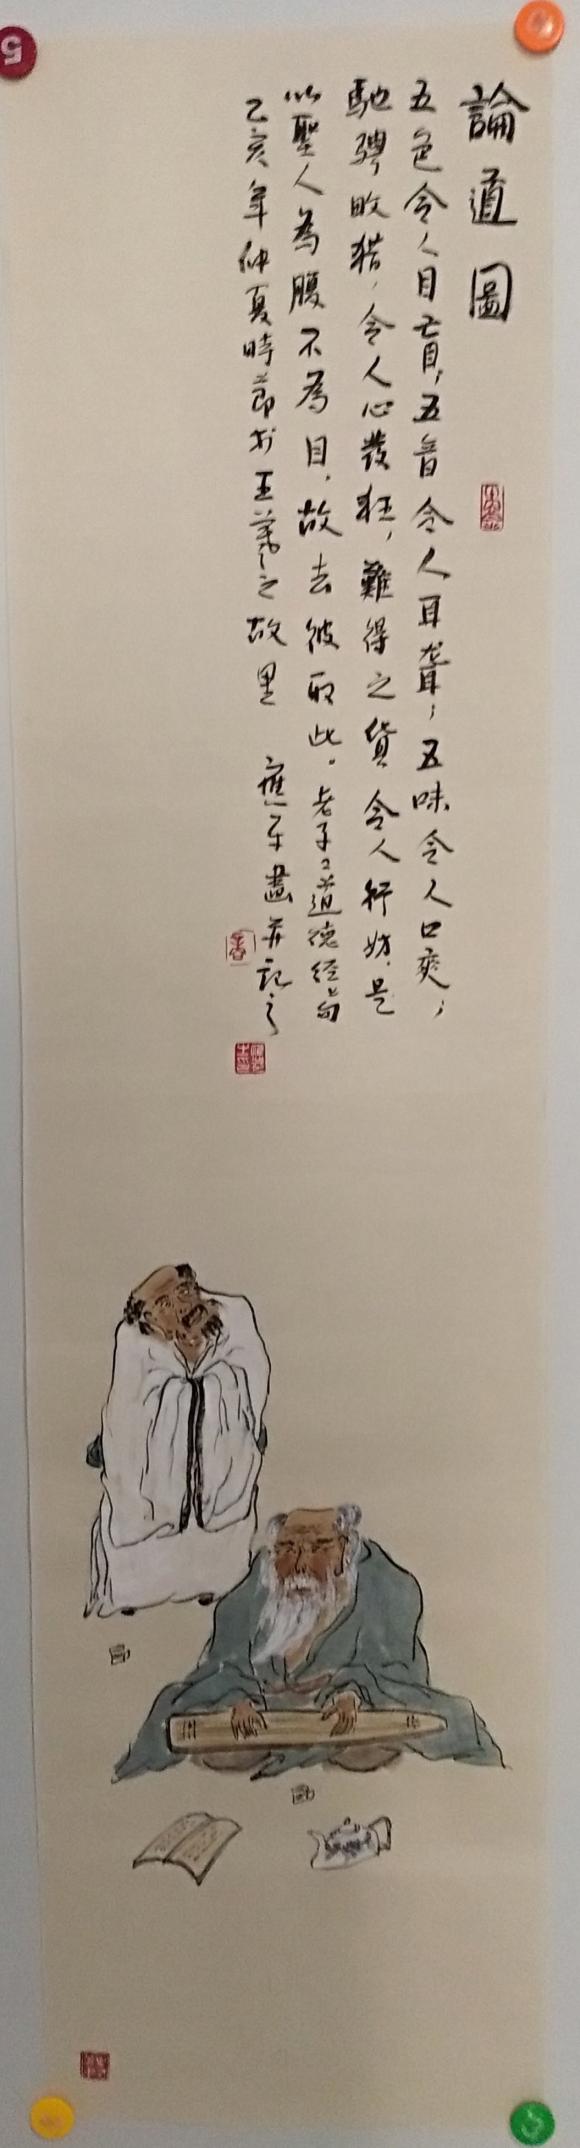 論道圖
五色令人目盲，五音令人耳聾；五味令人口爽；
馳騁畋猎，令人心發狂，難得之貨令人行妨．是
以聖人為腹不為目．故去彼取此。老子《道德經》句
乙亥年仲夏時節於王羲之故里 畫并記之
5